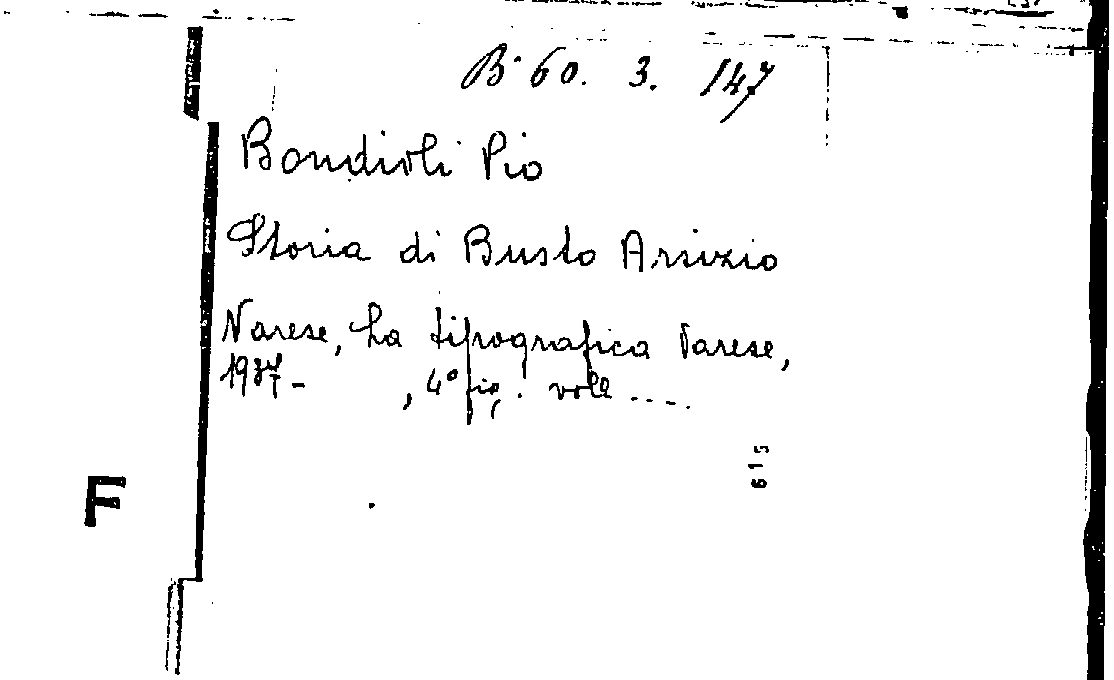 B. 60. 3. 147
Bondioli Pio
Storia di Busto Arsizio
Varese, La tipografica Varese,
1937- , 4° fig. voll ....
615
F